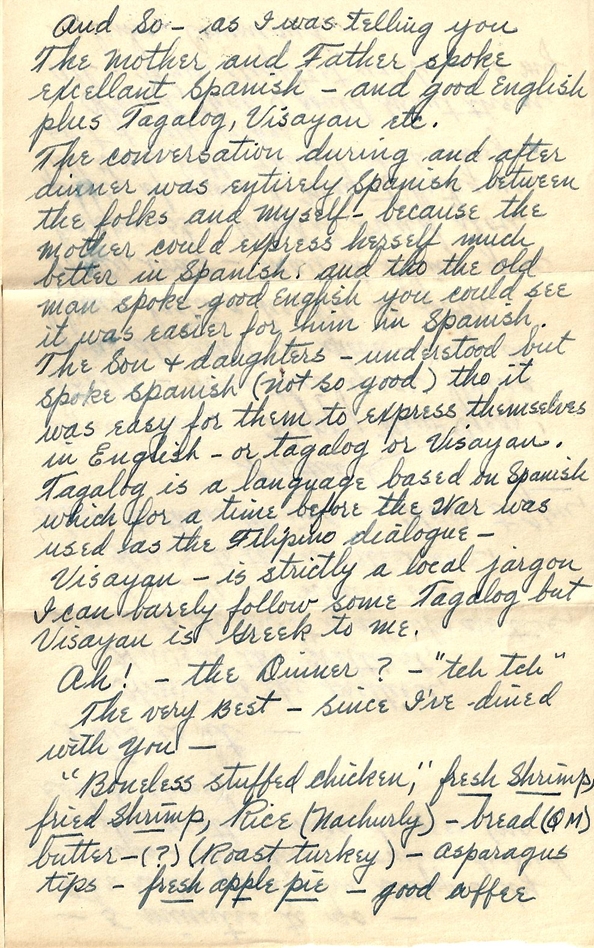 And So - as I was telling you
The mother and Father spoke
excellant Spanish - and good English
plus Tagalog, Visayan etc.
The conversation during and after
dinner was entirely Spanish between
the folks and myself - because the
mother could express herself much
better in Spanish. and tho the old
man spoke good English you could see
it was easier for him in Spanish.
The Son & daughters - understood but
spoke spanish (not so good) tho it
was easy for them to express themselves
in English - or tagalog or Visayan.
Tagalog is a language based on Spanish
which for a time before the War was
used as the Filipino dialogue -
Visayan - is strictly a local jargon
I can barely follow some Tagalog but
Visayan is Greek to me.
Ah! - the Dinner? - "tch tch"
The very Best - since I've dined
with you -
"Boneless stuffed chicken," fresh Shrimp,
fried Shrimp, Rice (Nachurly) - bread (QM)
butter - (?) (Roast turkey) - asparagus
tips - fresh apple pie - good coffee